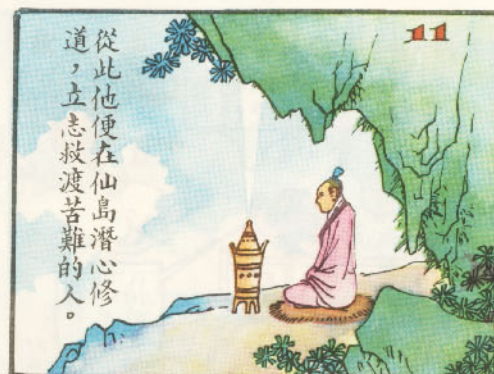 11
從此他便在仙島潛心修
道，立志救渡苦難的人。